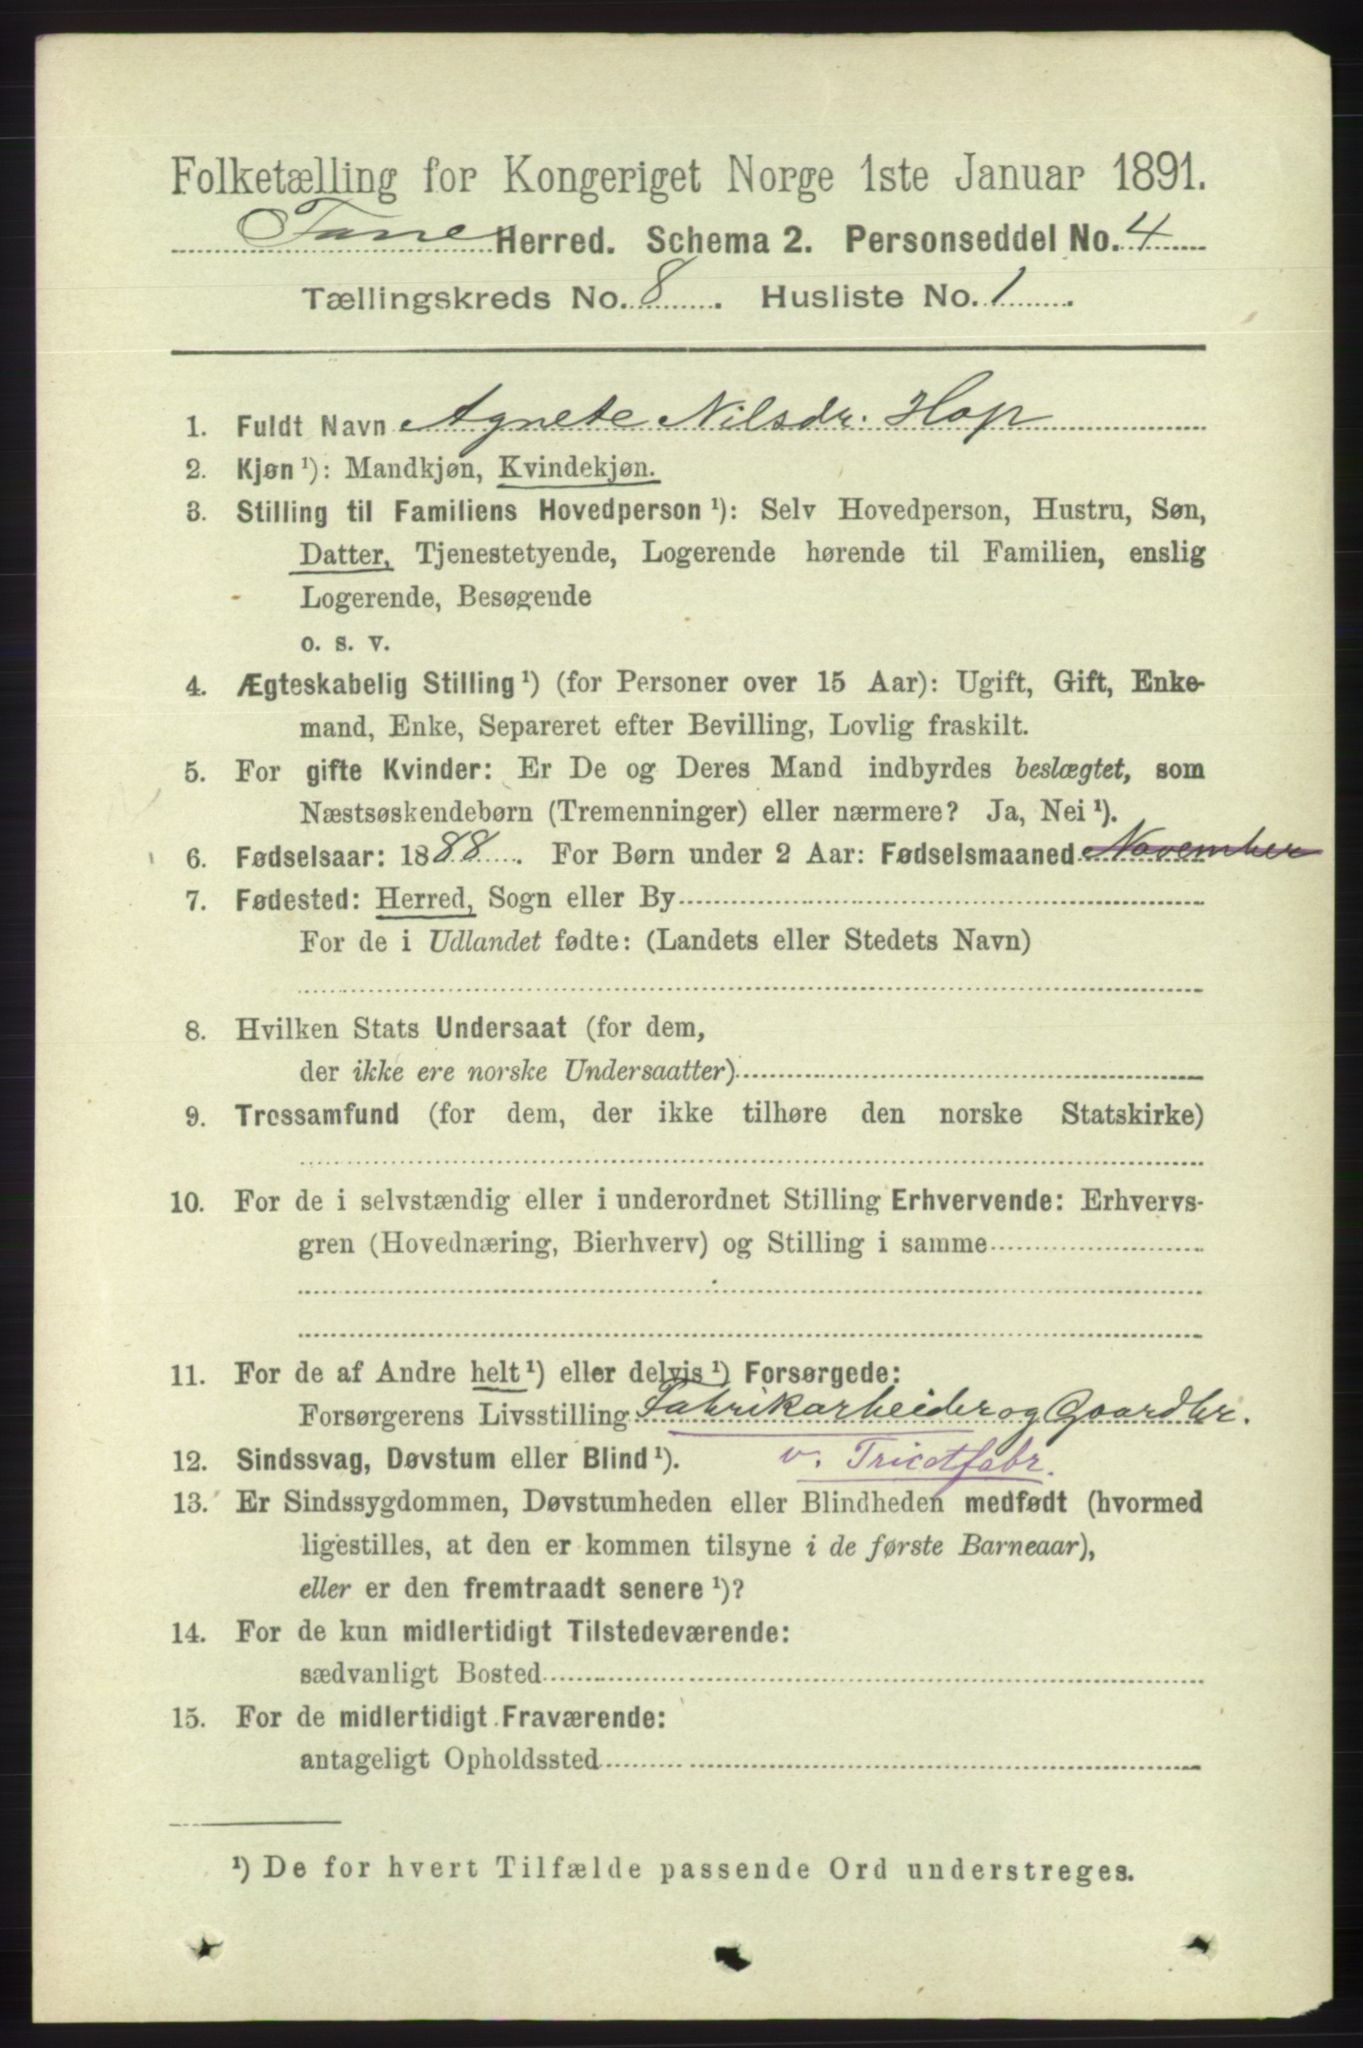 Folketælling for Kongeriget Norge 1ste Januar 1891.
Fane Herred. Schema 2. Personseddel No. 4
Tællingskreds No. 8. Husliste No. 1.
1. Fuldt Navn Agnete Nilsdr. Hop
2. Kjøn ¹): Mandkjøn, Kvindekjøn.
3. Stilling til Familiens Hovedperson ¹): Selv Hovedperson, Hustru, Søn,
Datter, Tjenestetyende, Logerende hørende til Familien, enslig
Logerende, Besøgende
o. s. v.
4. Ægteskabelig Stilling ¹) (for Personer over 15 Aar): Ugift, Gift, Enke-
mand, Enke, Separeret efter Bevilling, Lovlig fraskilt.
5. For gifte Kvinder: Er De og Deres Mand indbyrdes beslægtet, som
Næstsøskendebørn (Tremenninger) eller nærmere? Ja, Nei ¹).
6. Fødselsaar: 1888. For Børn under 2 Aar: Fødselsmaaned November
7. Fødested: Herred, Sogn eller By
For de i Udlandet fødte: (Landets eller Stedets Navn)
8. Hvilken Stats Undersaat (for dem,
der ikke ere norske Undersaatter)
9. Trossamfund (for dem, der ikke tilhøre den norske Statskirke)
10. For de i selvstændig eller i underordnet Stilling Erhvervende: Erhvervs-
gren (Hovednæring, Bierhverv) og Stilling i samme
11. For de af Andre helt ¹) eller delvis ¹) Forsørgede:
Forsørgerens Livsstilling Fabrikarbeider og Gaardbr.
12. Sindssvag, Døvstum eller Blind ¹). v. Tricotfabr.
13. Er Sindssygdommen, Døvstumheden eller Blindheden medfødt (hvormed
ligestilles, at den er kommen tilsyne i de første Barneaar),
eller er den fremtraadt senere ¹)?
14. For de kun midlertidigt Tilstedeværende:
sædvanligt Bosted
15. For de midlertidigt Fraværende:
antageligt Opholdssted
¹) De for hvert Tilfælde passende Ord understreges.